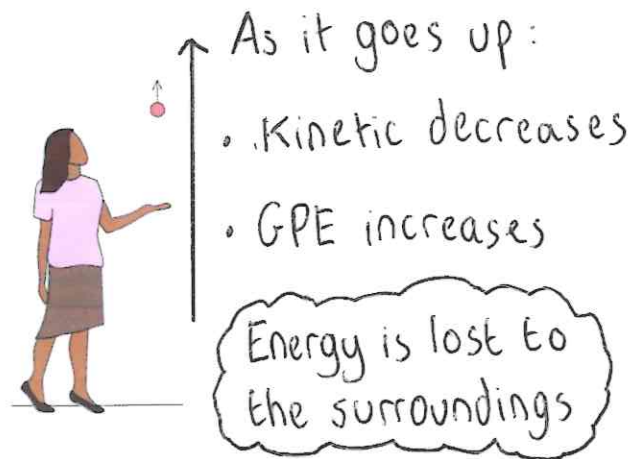 As it goes up:
• Kinetic decreases
• GPE increases
Energy is lost to
the surroundings